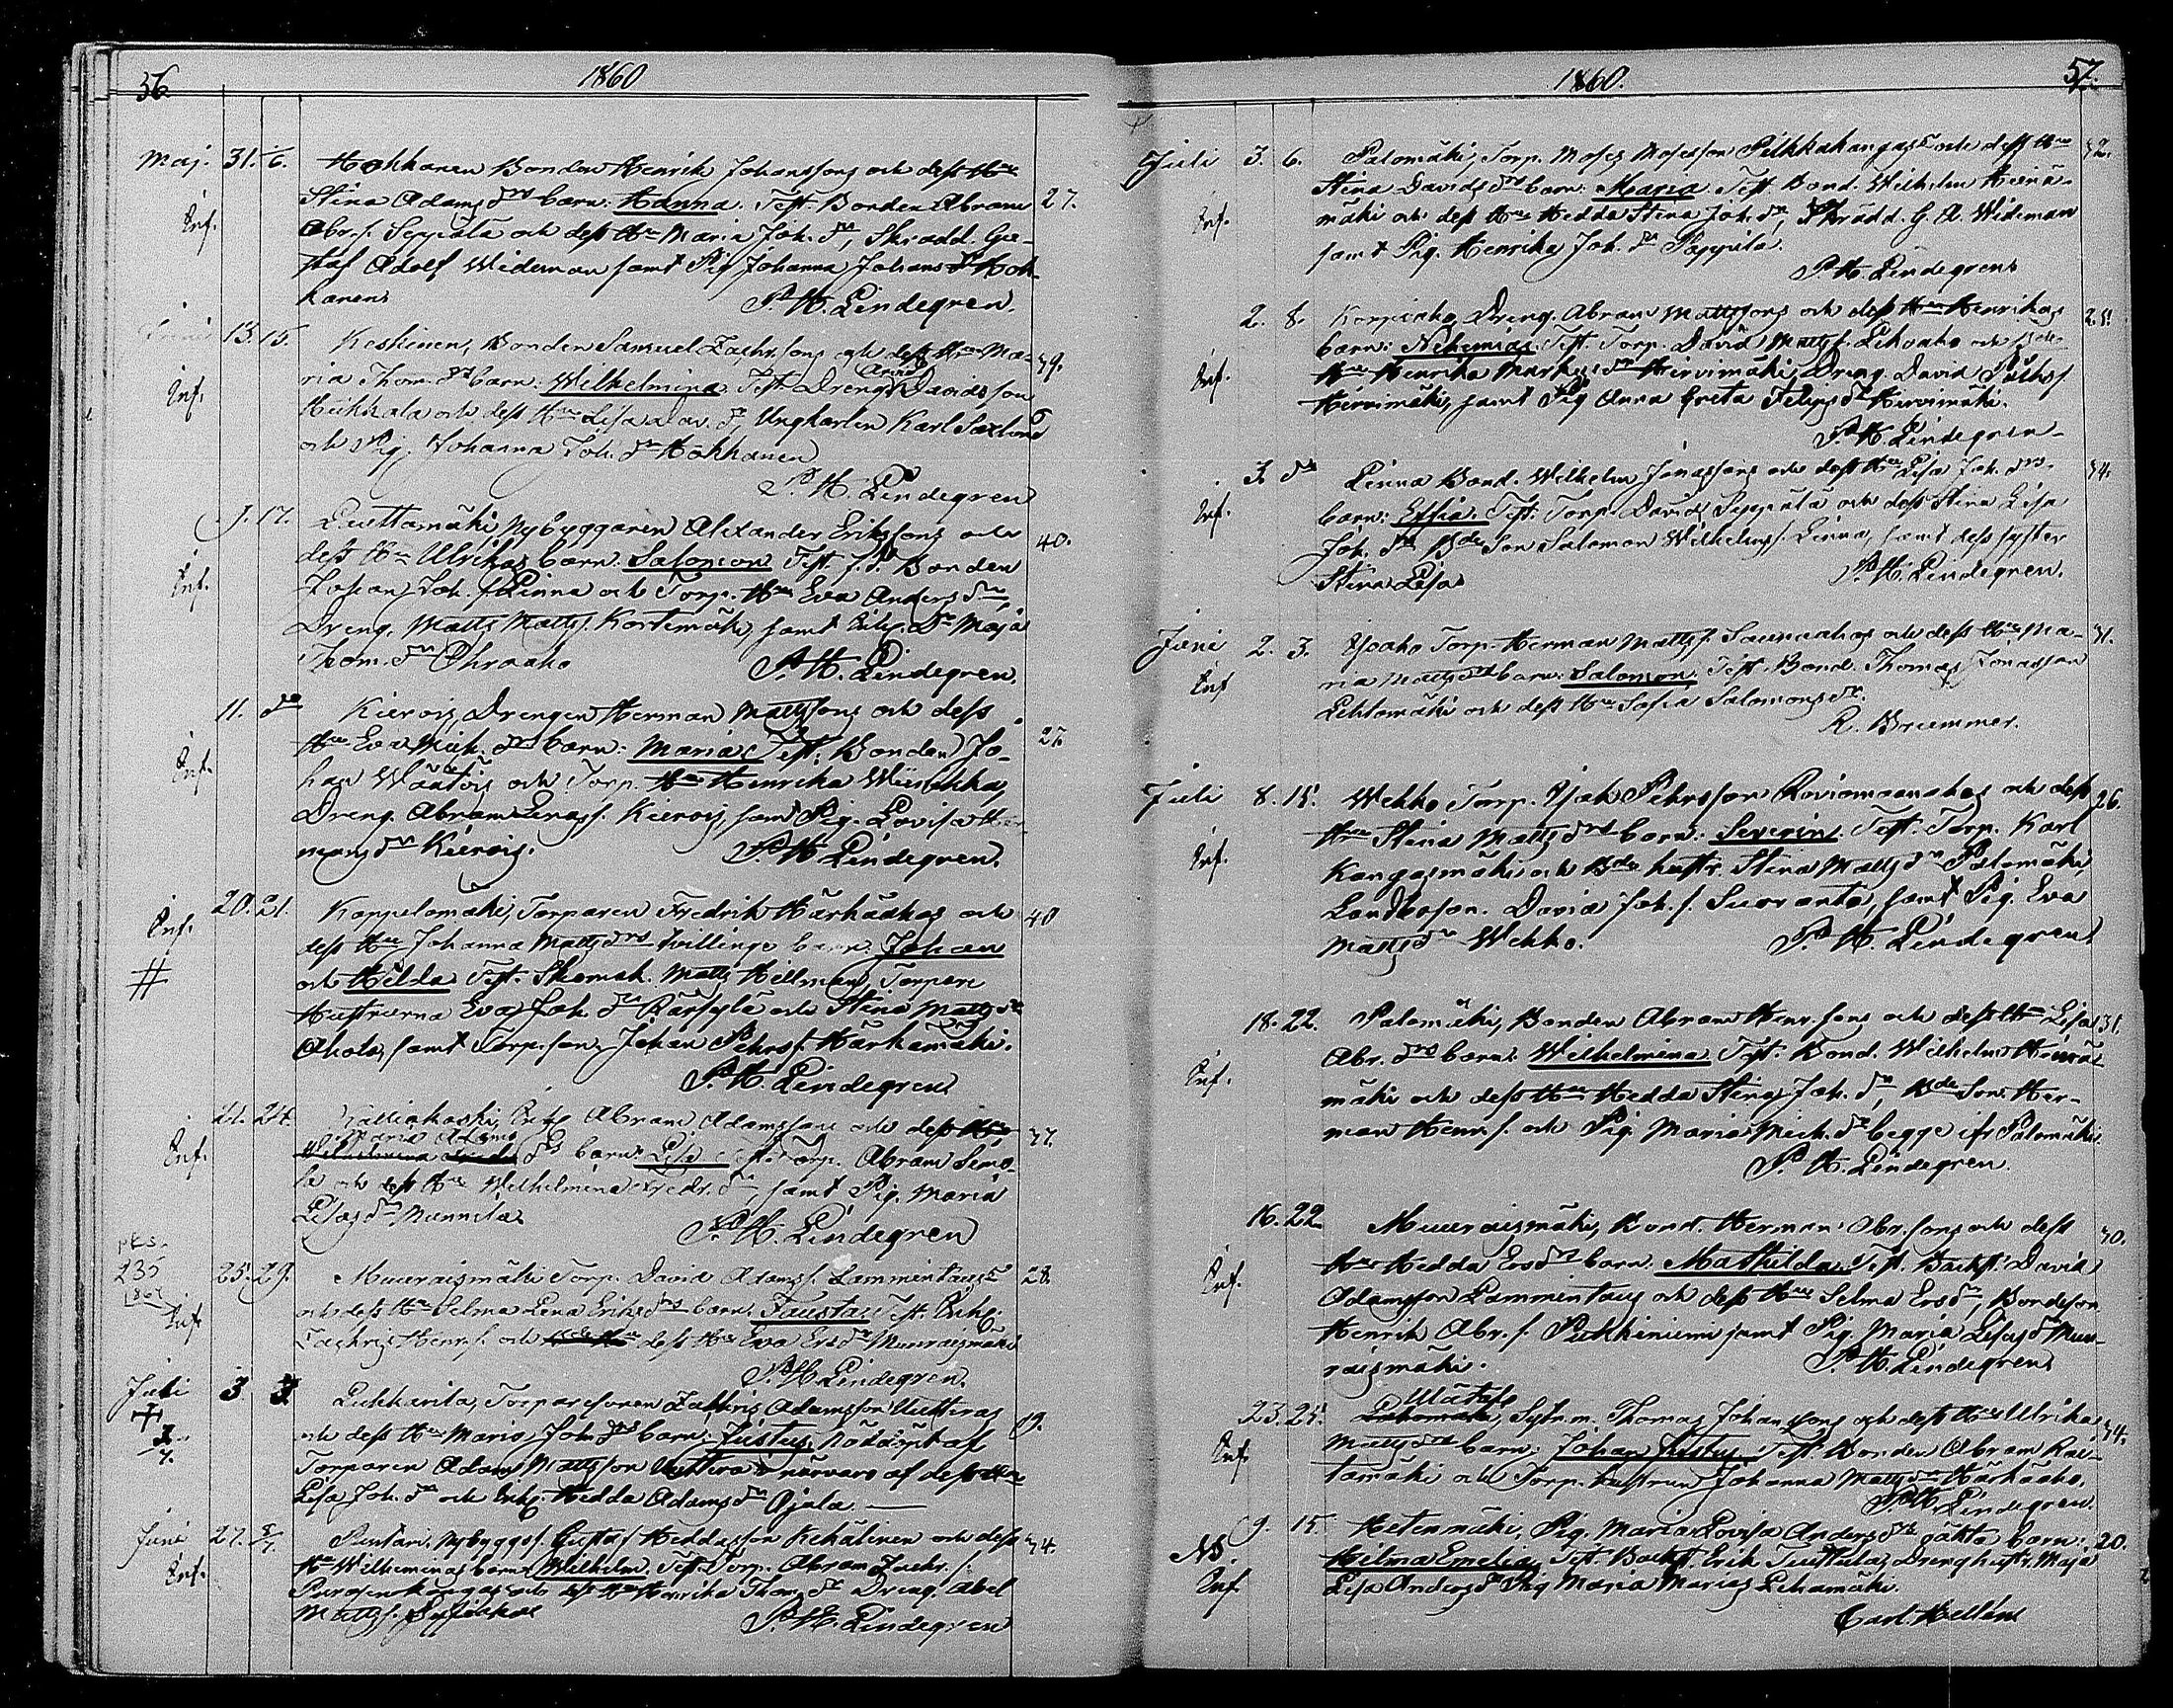 56. 1860
Maj. 31. 1/6. Hokkanen Bonden Henrik Johanssons och dess Hu
Stina Adams drs barn: Hanna. Test. Bonden Abram 27.
Inf. Abr. s. Seppälä och dess Hu Maria Joh. dr, Skrädd. Gu-
staf Adolf Wideman samt Pig Johanna Johans dr Hok-
kanen P. H. Lindegren.
Juni 13. 15. Koskinen, Bonden Samuel Zachr. sons och dess Hu Ma- 39.
ria Thom. drs barn: Wilhelmina. Test. Dreng Davidsson
Inf. Heikkala och dess Hu Lisa dr, Ungkarlen Karl Saxlund
och Pig. Johanna Joh. dr Hokkanen
P. H. Lindegren
9. 17. Luottamäki Nybyggaren Alexander Erikssons och 40.
dess Hu Ulrikas barn: Salomon Test. f. d. Bonden
Inf. Johan Joh. s. Linna och Torp. Hu Eva Anders dr,
Dreng. Matts Matts s. Kortemäki, samt Enk. Maja
Thom. dr Ohraaho P. H. Lindegren.
11. do Kierois, Drengen Herman Mattssons och dess
Hu Eva Mich. drs barn: Maria Test. Bonden Jo- 27.
Inf. han Wäätöis och Torp. Hu Henrika
Dreng. Abram Kierois, samt Pig. Lovisa Her-
mans dr Kierois. P. H. Lindegren.
20. 21. Koppelomäki, Torparen Fredrik Härkäahos och 40
Inf. dess Hu Johanna Matts drs tvillinge barn: Johan
# och Hilda Test. Skomak. Matts Hillman, Torpare
Hustrurna Eva Joh. dr Räisylä och Stina Matts dr
Ahola, samt Torp. son Johan Pehrs s. Härkämäki.
P. H. Lindegren
21. 24. Kalliokoski, Abram Adamsson och dess Hu 37.
Maria Adams
Inf. drs barn: Lisa Test. Torp. Abram Simo-
la och dess Hu Wilhelmina Fredr. dr, samt Pig. Maria
Lisas dr Mannila
P. H. Lindegren
235
1867
25. 29. Muuraismäki Torp. David Adams s. Lammintaus 28.
Inf. och dess Hu Selma Lena Eriks drs barn: Fausta Test. Enkl.
Zachris Henr. s. och dess Hu Eva Ers dr Muuraismäki
P. H. Lindegren.
Juli 3. 3. Luhkarila, Torparesonen Zakris Adamsson Uuttus
och dess Hu Maria Joh. drs barn: Justus, Nöddöpt af 19.
Torparen Adam Mattsson i närvaro af dess Hu
Lisa Joh. dr och Enk. Hedda Adams dr Ojala
Juni 27. 5/7. Nybyggs s. Gustaf Heddasson Kehälinen och dess 34.
Inf. Hu Wilhelminas barn: Wilhelm. Test. Torp. Abram Zachr. s.
kangas och dess Hu Henrika Thom. dr, Dreng. Abel
Matts s. P. H. Lindegren
1860. 57.
Juli 3. 6. Palomäki, Torp. Moses Mosesson Pilkkakangas och dess Hu 32.
Stina Davids drs barn: Maria. Test. Bond. Wilhelm Heinä-
Inf. mäki och dess Hu Hedda Stina Joh. dr, Skrädd. G. A. Wideman
samt Pig. Henrika Joh. dr Pappila.
P. H. Lindegren
2. 8. Korpiaho, Dreng. Abram Mattssons och dess Hu Henrikas 25.
barn: Nehemias. Test. Torp. David Matts s. Lehoaho och
Inf. Hu Henrika Markus dr Hirvimäki, Dreng. David
Hirvimäki, samt Pig Anna Greta Filips dr Hirvimäki.
P. H. Lindegren
3. do Linna Bond. Wilhelm Jonassons och dess Hu Lisa Joh. drs 34.
Inf. barn: Effia. Test: Torp. David Seppälä och dess Stina Lisa
Joh. dr Bde Son Salomon Wilhelms s. Linna, samt dess syster
Stina Lisa P. H. Lindegren.
Juni 2. 3. Ysoaho Torp. Herman Matts s. Saunaahos och dess Hu Ma- 31.
Inf ria Matts drs barn: Salomon. Test. Bond. Thomas Jonasson
Lehtomäki och dess Hu Sofia Salomons dr.
R. Brummer.
Juli 8. 15. Wehko Torp. Isak Pehrsson Roviomaanahos och dess 26.
Hu Stina Matts drs barn: Severin. Test. Torp. Karl
Inf. Kangasmäki och Bde hustr. Stina Matts dr Palomäki,
Landboson. David Joh. s. Suoranta, samt Pig. Eva
Matts dr Wehko. P. H. Lindegren
18. 22. Palomäki, Bonden Abram Henr. sons och dess Hu Lisa 31.
Abr. drs barn: Wilhelmina Test. Bond. Wilhelm Heinä-
Inf. mäki och dess Hu Hedda Stina Joh. dr, Bde Son Her-
man Henr. s. och Pig. Maria Mich. dr begge ifr. Palomäki.
P. H. Lindegren.
16. 22 Muuraismäki, Bond. Herman Abr. sons och dess 30.
Hu Hedda Ers drs barn: Mathilda. Test. Backst. David
Inf. Adamsson Lammintaus och dess Hu Selma Ers dr, Bondeson
Henrik Abr. s. Pukkiniemi samt Pig. Maria Lisas dr Muu-
raismäki. P. H. Lindegren
23. 25. Thomas Johanssons och dess Hu Ulrika 34.
Inf. Matts drs barn: Johan Justus. Test. Bonden Abram Rai-
tamäki och Torp. hustrun Johanna Matts dr Härkäaho.
P. H. Lindegren.
9. 15. Hetenmäki, Pig. Maria Lovisa Anders drs oäkta barn: 20.
NB. Hilma Emelia. Test. Backst. Erik Tuuttila, Dreng hustr. Maja
Inf Lisa Anders dr Pig Maria Marias Lehamäki.
Carl Hellén